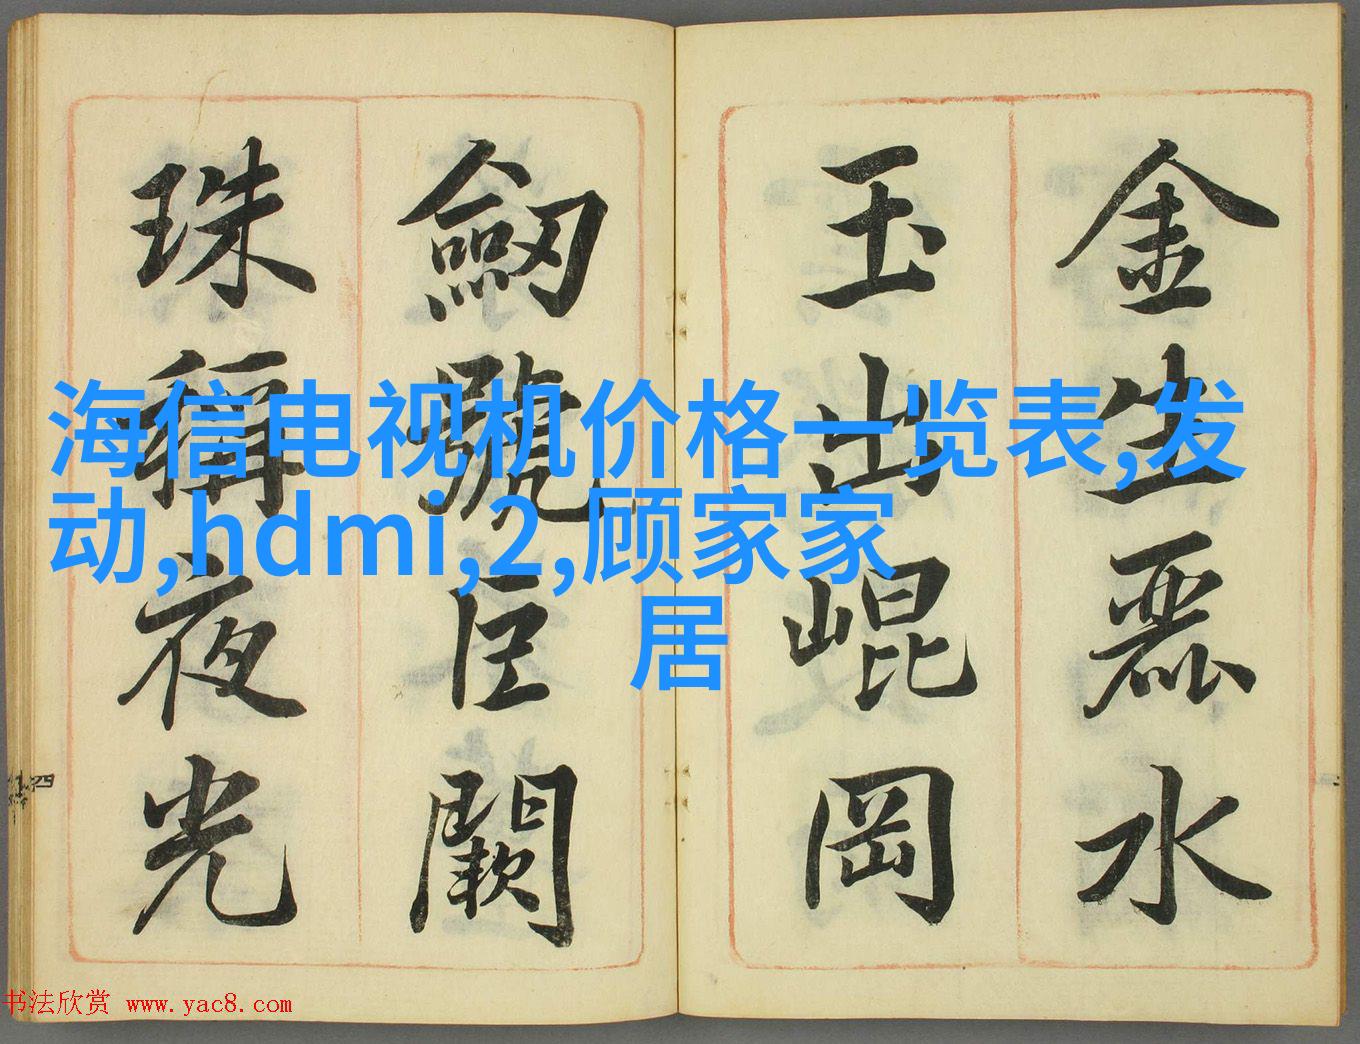 金生麗水
玉出崐岡
劒號巨闕
珠稱夜光
海信电视机价格一览表,发
动,hdmi,2,顾家家
居
四
书法欣赏 www.yac8.com